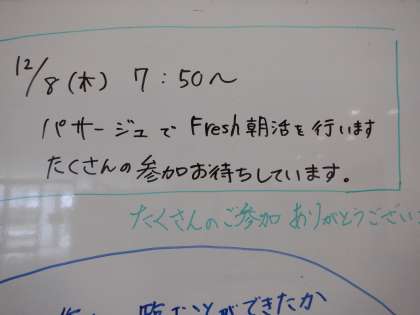 12/8(木) 7:50〜
パサージュで Fresh朝活を行います
たくさんの参加お待ちしています。
たくさんのご参加 ありがとうござい
ことができたか